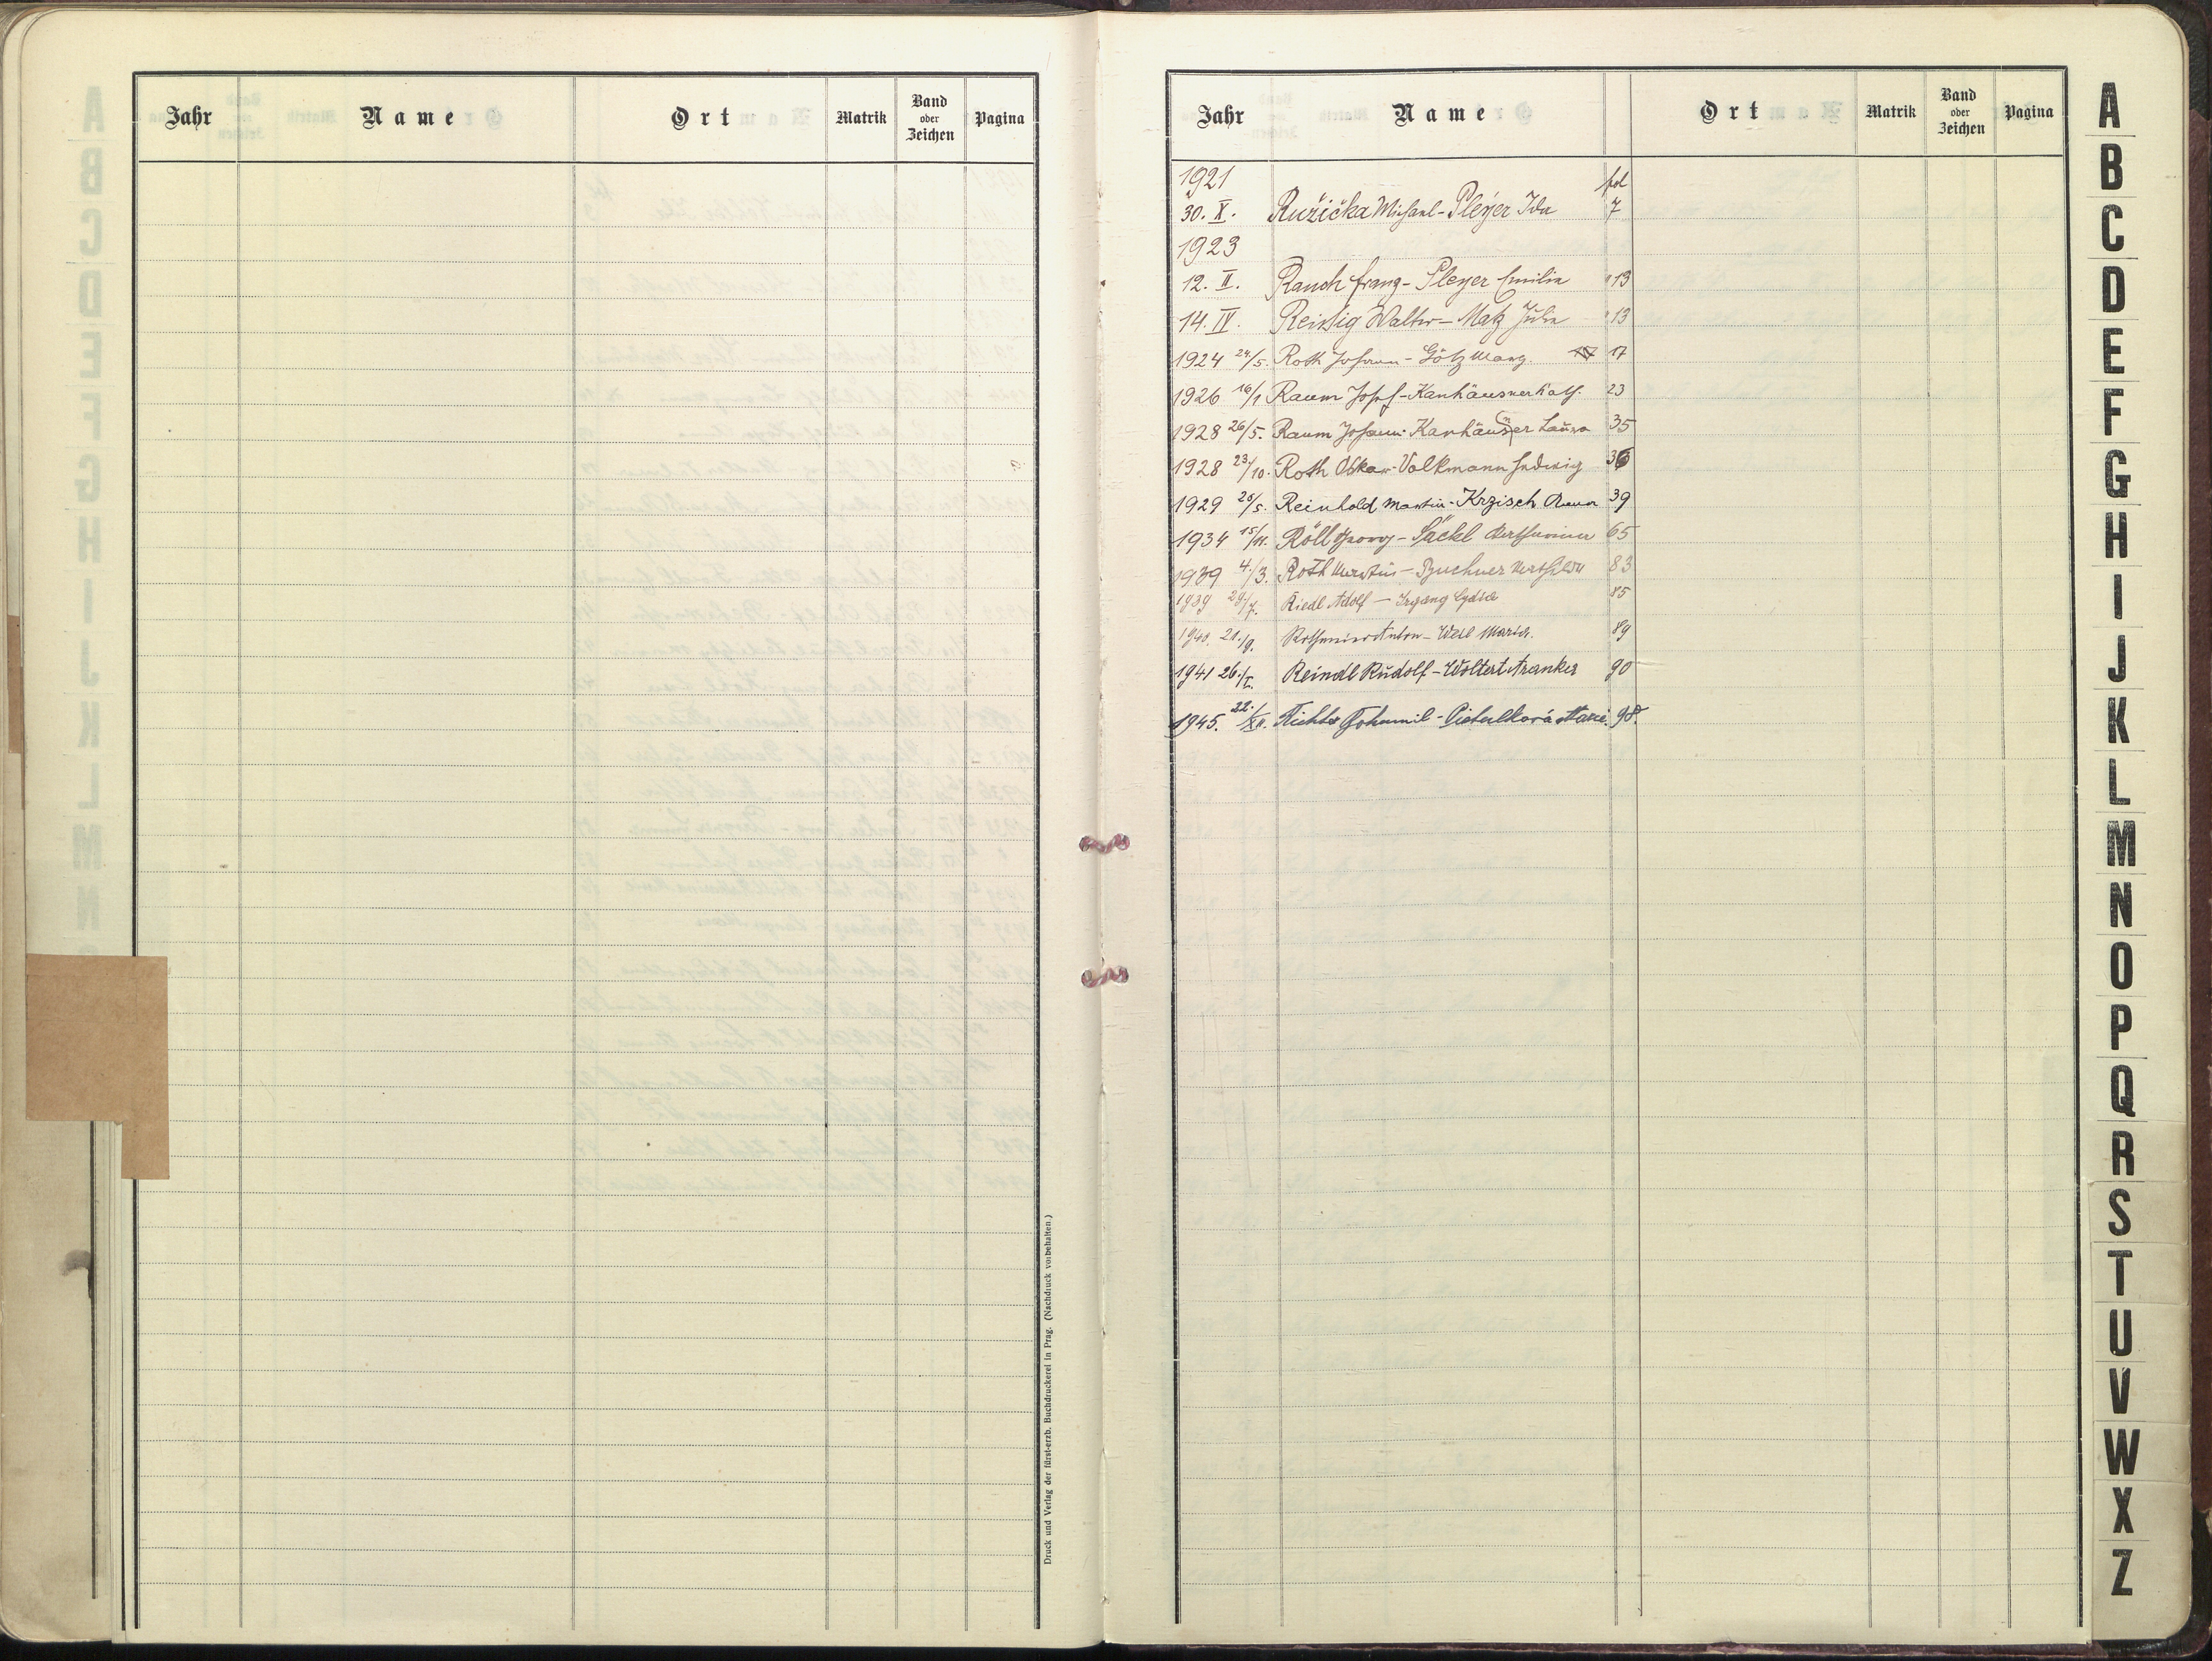 Jahr Name Ort Matrik Band oder Zeichen Pagina
Druck und Verlag der fürst-erzb. Buchdruckerei in Prag. (Nachdruck vorbehalten.)
Jahr Name Ort Matrik Band oder Zeichen Pagina
1921 fol
30. X. Ružička Michael - Pleyer Ida 7
1923
12. II. Rauch Franz - Pleyer Emilie " 13
14. IV. Reissig Walter - Matz Julie " 13
1924 24/5. Roth Johann - Götz Marg. 17
1926 16/1 Raum Josef - Kanhäuser Kath. 23
1928 26/5. Raum Johann - Kanhäuser Laura 35
1928 23/10. Roth Oskar - Volkmann Hedwig 36
1929 20/5. Reinhold Martin - Krzisch 39
1934 15/11. Röll Georg - Säckl 65
1939 4./3. Roth - Buchner 83
1939 29/7. Riedl Adolf - Irgang Lydia 85
1940. 21./9. Anton - Weil Maria. 89
1941 26./I. Reindl Rudolf - Woltert 90
1945. 22./XII. Richter Bohumil - Marie. 98.
A
B
C
D
E
F
G
H
I
J
K
L
M
N
O
P
Q
R
S
T
U
V
W
X
Z